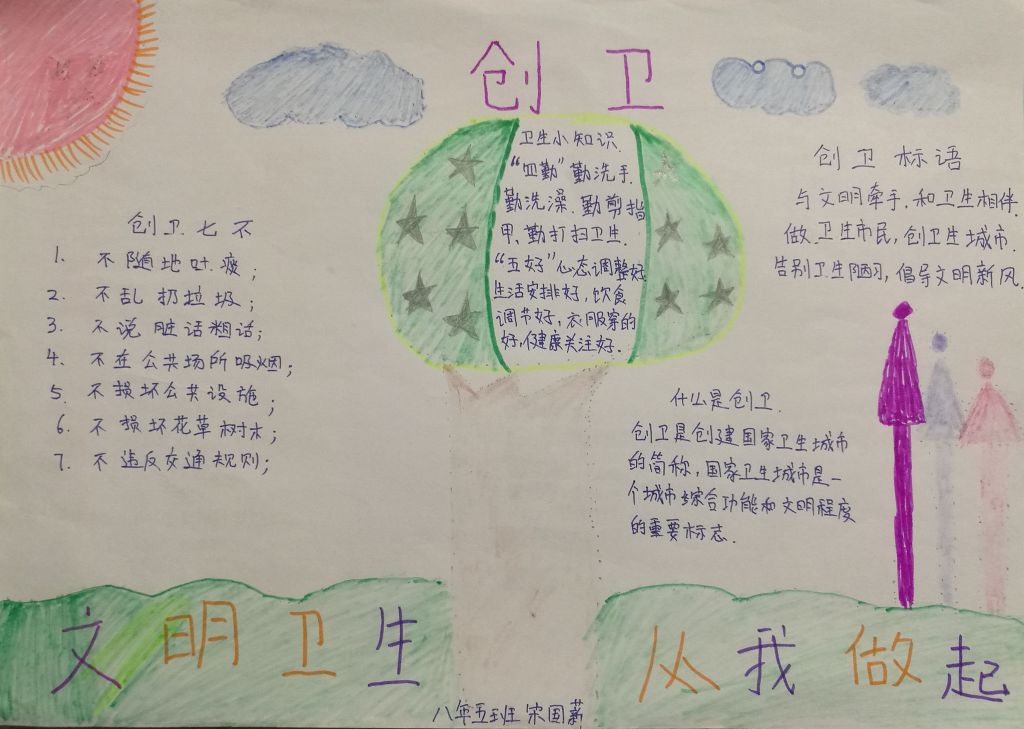 创卫
卫生小知识.
“四勤”勤洗手.
勤洗澡.勤剪指
甲.勤打扫卫生.
“五好”心态调整好
生活安排好,饮食
调节好,衣服穿的
好,健康关注好.
创卫七不
1. 不随地吐痰;
2. 不乱扔垃圾;
3. 不说脏话粗话;
4. 不在公共场所吸烟;
5. 不损坏公共设施;
6. 不损坏花草树木;
7. 不违反交通规则;
创卫标语
与文明牵手.和卫生相伴.
做卫生市民,创卫生城市.
告别卫生陋习,倡导文明新风.
什么是创卫.
创卫是创建国家卫生城市
的简称,国家卫生城市是一
个城市综合功能和文明程度
的重要标志.
文明卫生
从我做起
八年五班 宋国